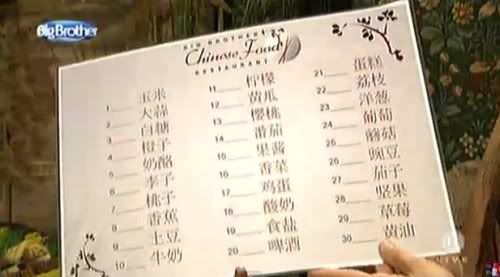 Big Brother
BIG BROTHER
Chinese Food
RESTAURANT
1 玉米
2 大蒜
3 白糖
4 橙子
5 奶酪
6 李子
7 桃子
8 香蕉
9 土豆
10 牛奶
11 柠檬
12 黄瓜
13 樱桃
14 番茄
15 果酱
16 香菜
17 鸡蛋
18 酸奶
19 食盐
20 啤酒
21 蛋糕
22 荔枝
23 洋葱
24 葡萄
25 蘑菇
26 豌豆
27 茄子
28 坚果
29 草莓
30 黄油
LIVE